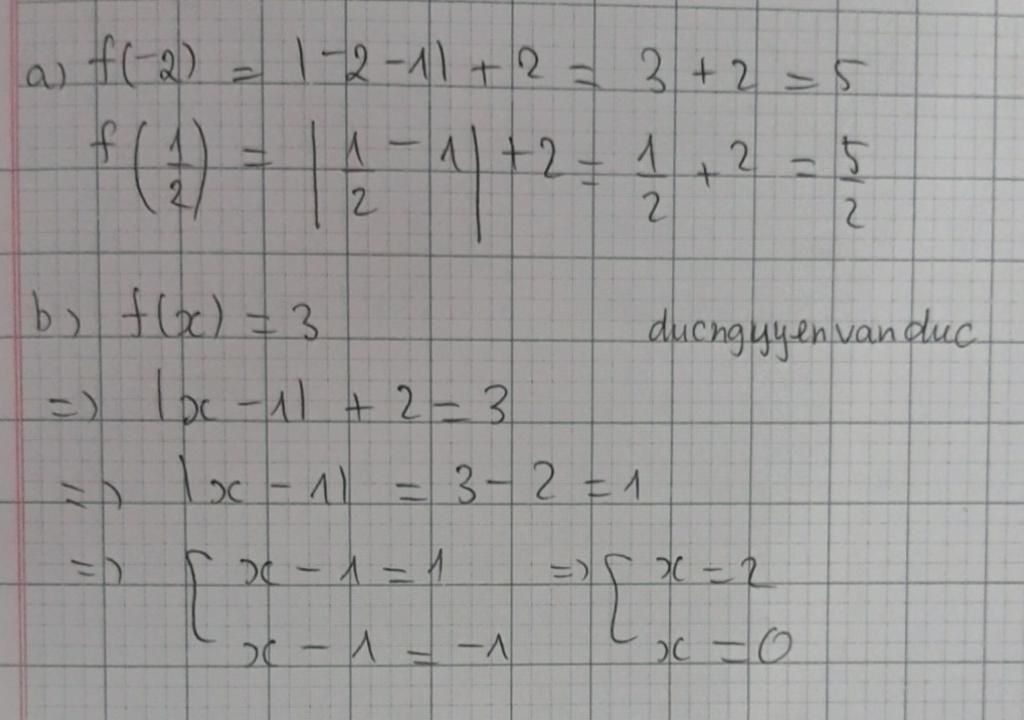 a) f(-2) = |-2-1| + 2 = 3 + 2 = 5
f(1/2) = |1/2 - 1| + 2 = 1/2 + 2 = 5/2
b) f(x) = 3
ducngyyenvanduc
=> |x - 1| + 2 = 3
=> |x - 1| = 3 - 2 = 1
=> [ x - 1 = 1 => [ x = 2
x - 1 = -1 x = 0